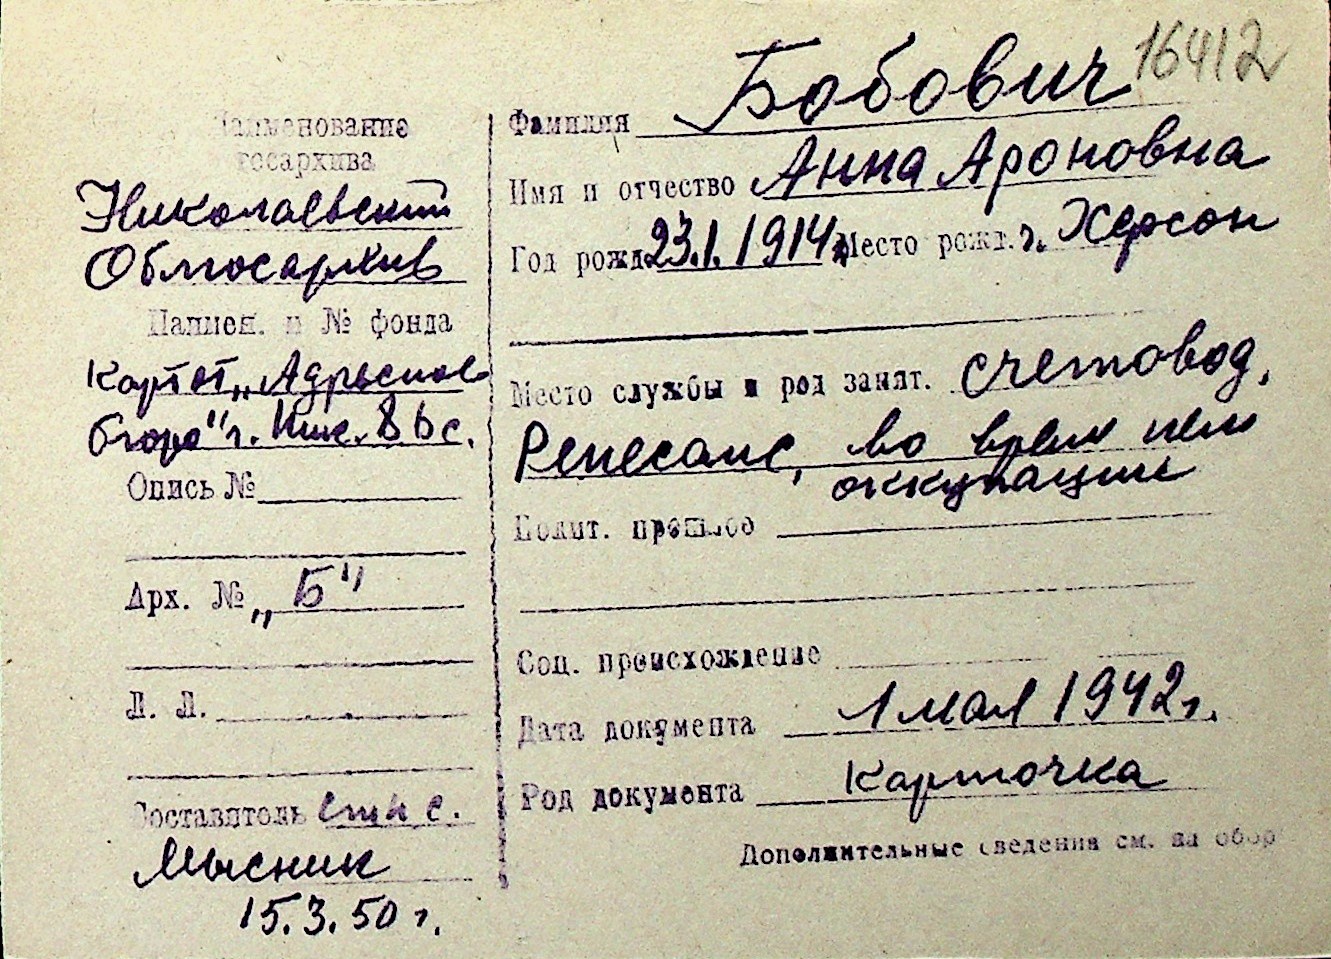 16412
Наименование
госархива
Николаевский
Облгосархив
Наимен. и № фонда
Картот. „Адресное
бюро" г. Ник.
Опись №
Арх. № „Б"
Л. Л.
Составитель ст н с.
Мысник
15.3.50 г.
Фамилия Бобович
Имя и отчество Анна Ароновна
Год рожд. 23.1.1914 г. Место рожд. г. Херсон
Место службы и род занят. счетовод,
Ренесанс, во время нем
оккупации
Полит. прошлое
Соц. происхождение
Дата документа 1 мая 1942 г.
Род документа карточка
Дополнительные сведения см. на обор